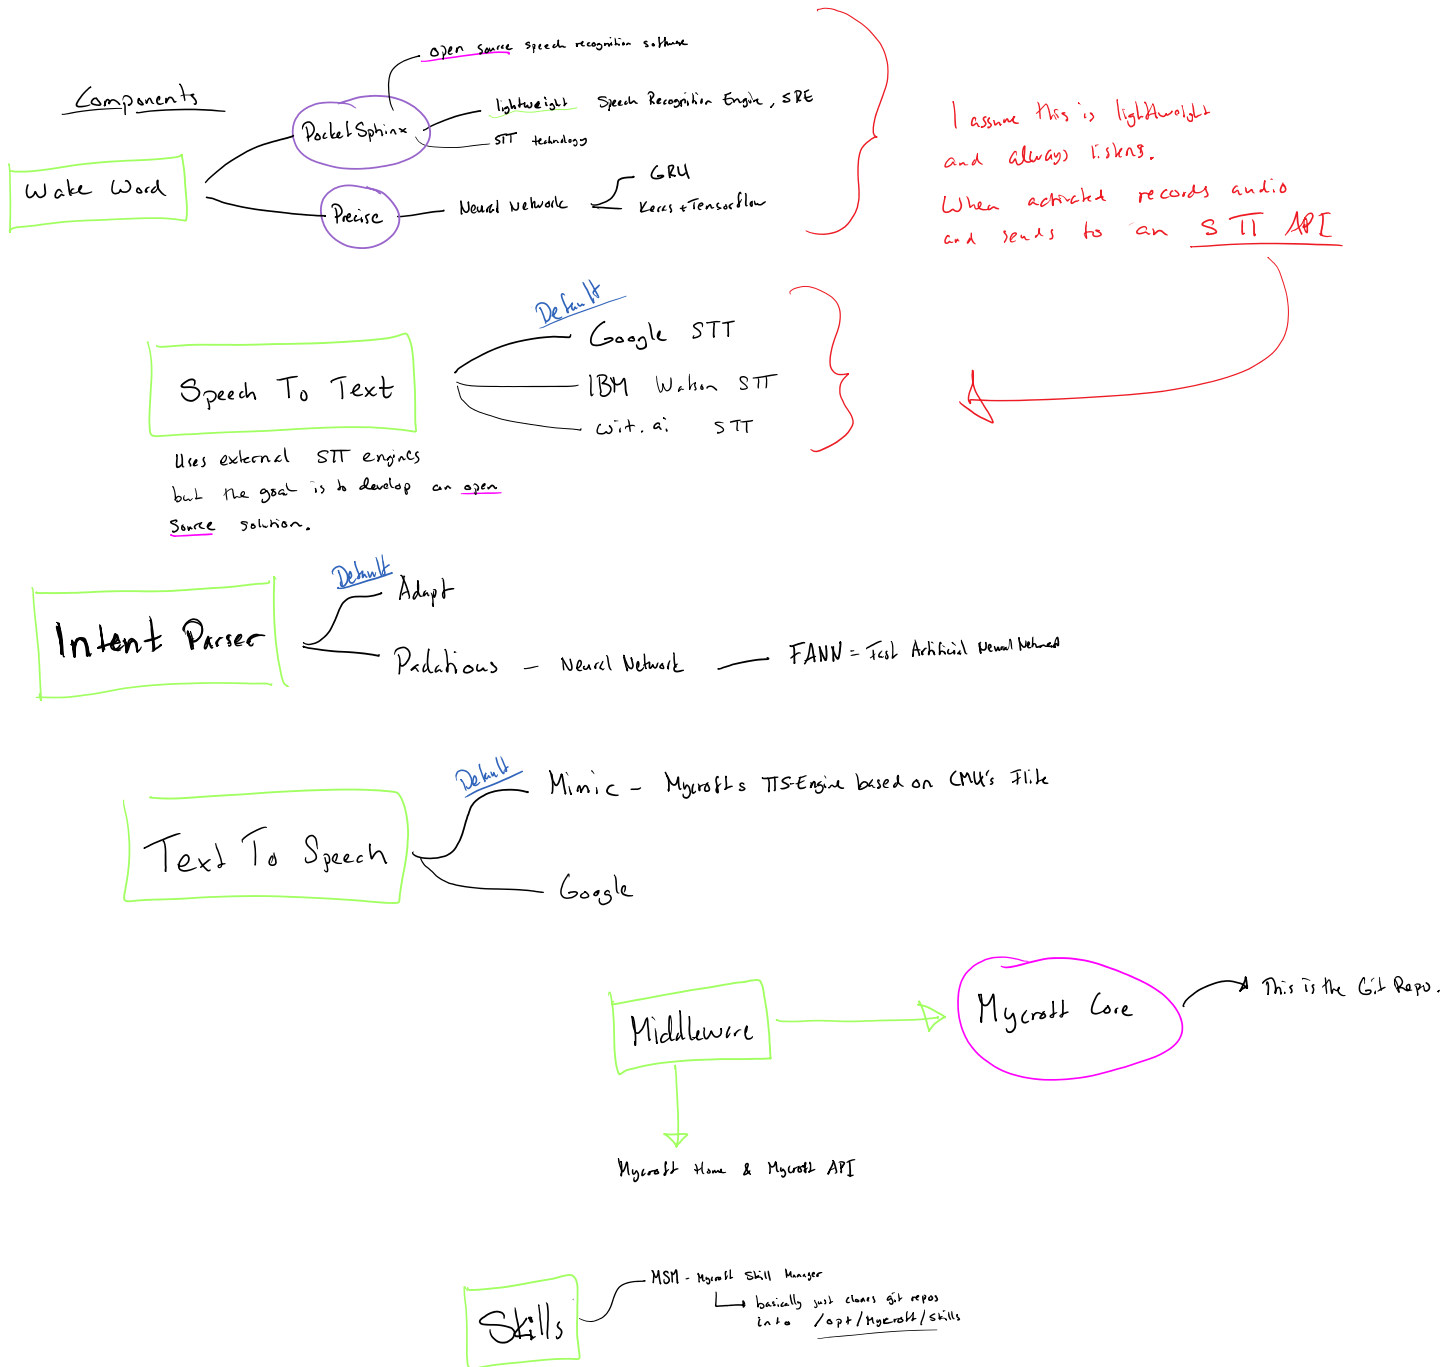 Components
open source speech recognition software
lightweight Speech Recognition Engine, SRE
PocketSphinx
STT technology
Wake Word
Precise
Neural Network
GRU
Keras + Tensorflow
I assume this is lightweight
and always listens.
When activated records audio
and sends to an STT API
Speech To Text
Default
Google STT
IBM Watson STT
wit.ai STT
Uses external STT engines
but the goal is to develop an open
source solution.
Intent Parser
Default
Adapt
Padatious - Neural Network
FANN = Fast Artificial Neural Network
Text To Speech
Default
Mimic - Mycroft's TTS-Engine based on CMU's Flite
Google
Middleware
Mycroft Core
This is the Git Repo.
Mycroft Home & Mycroft API
Skills
MSM - Mycroft Skill Manager
basically just clones git repos
into /opt/Mycroft/skills